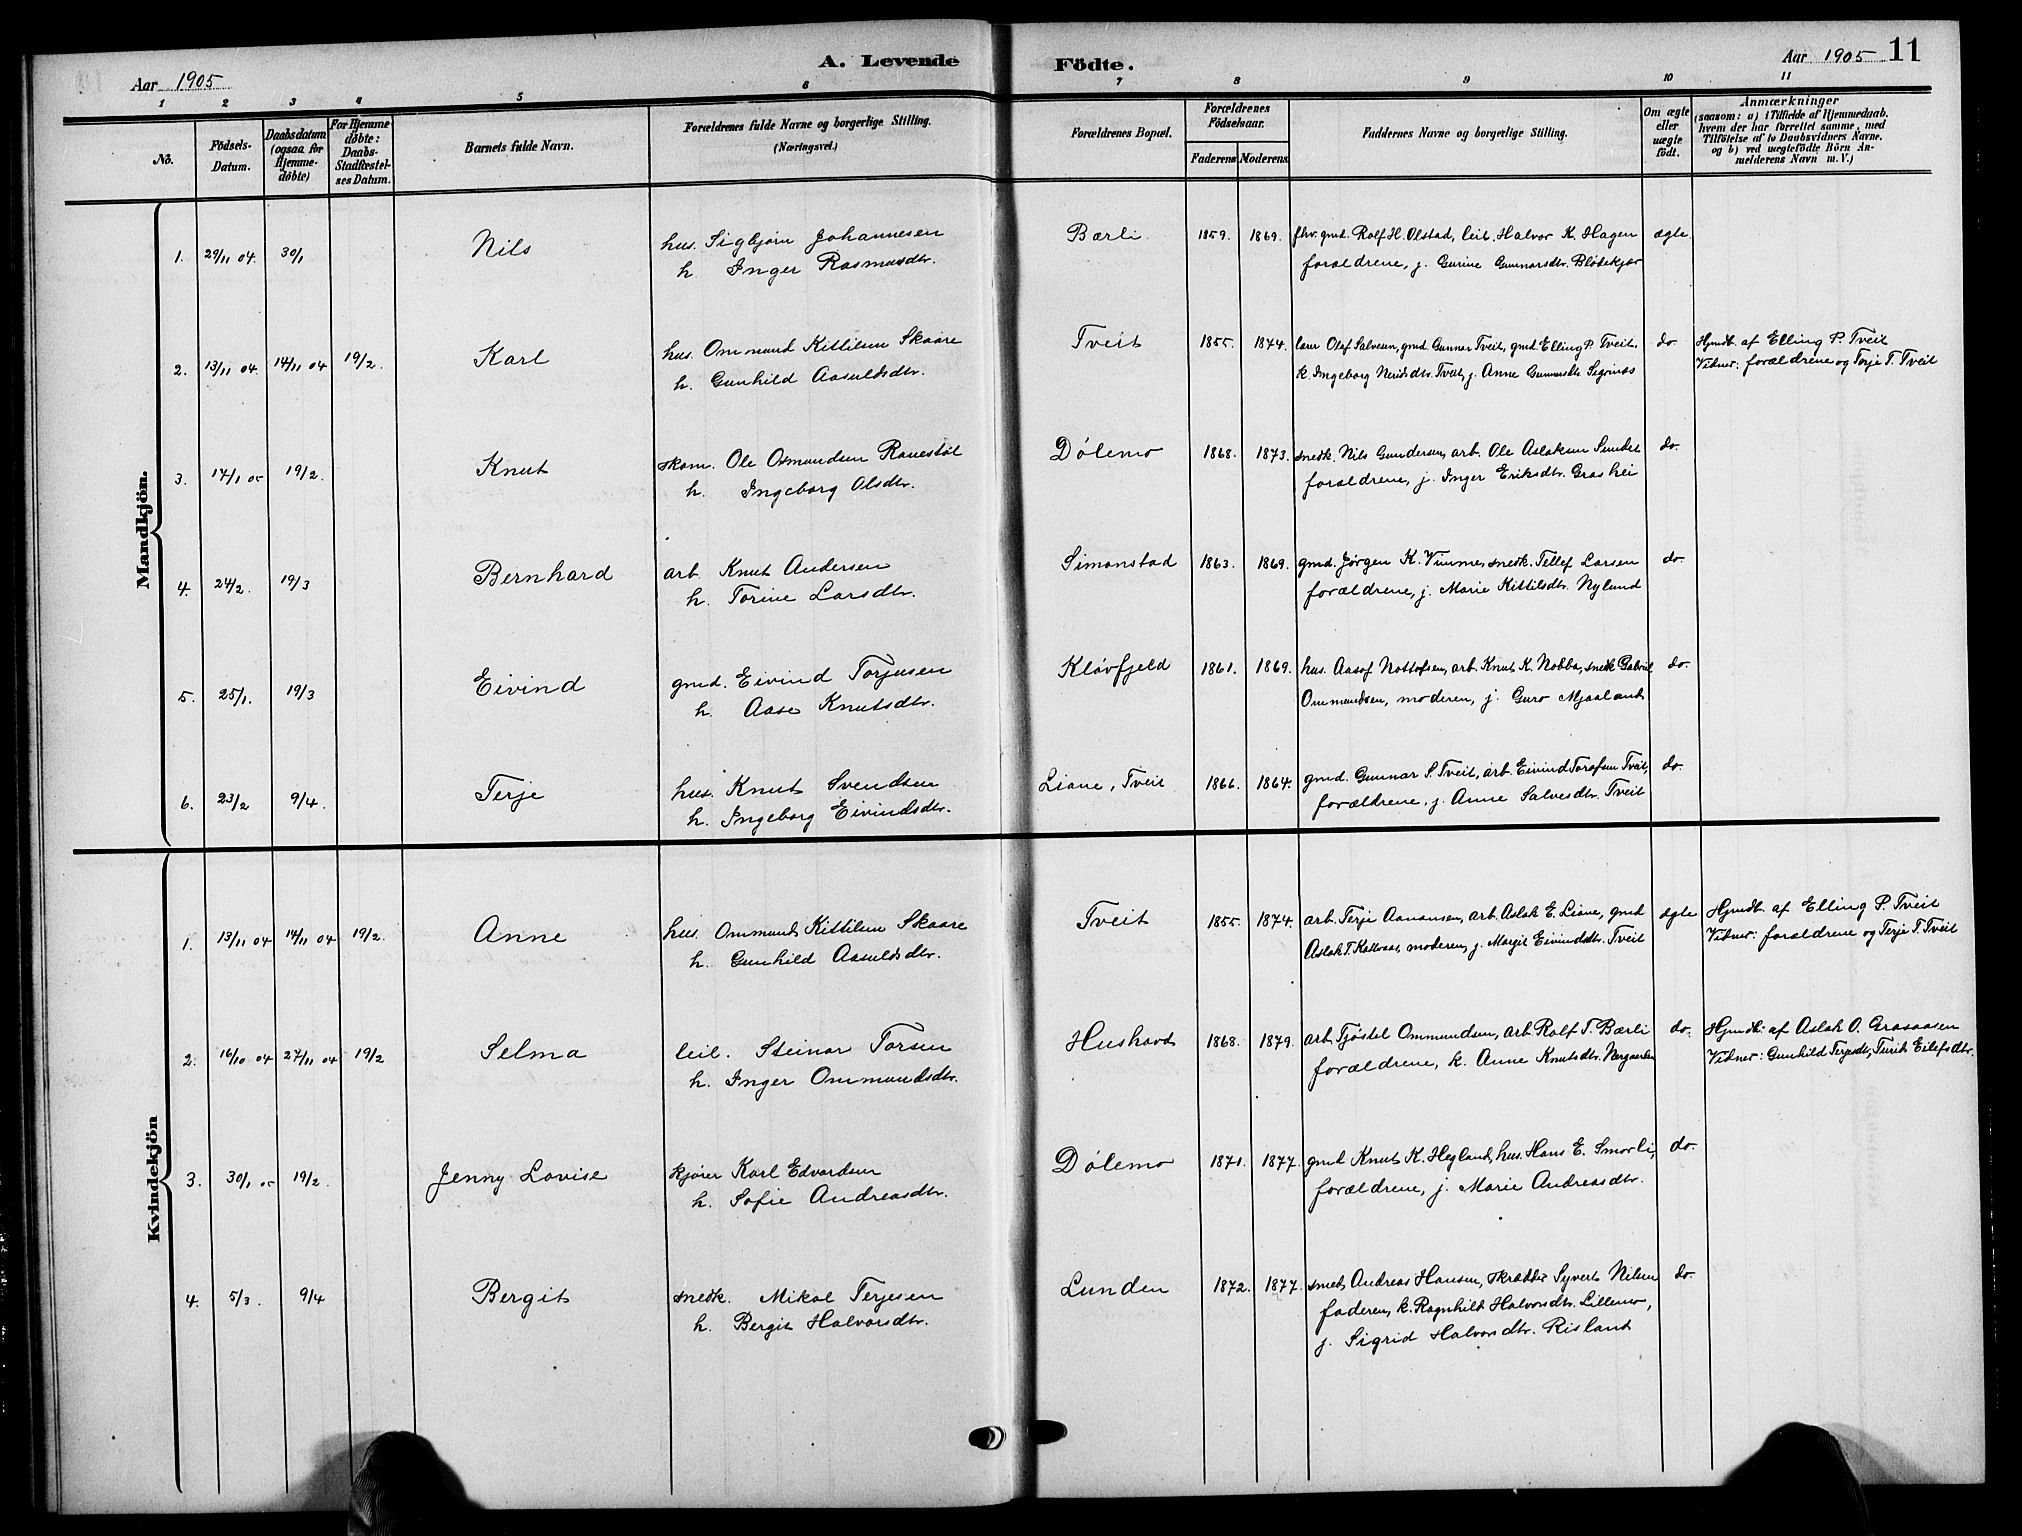 Aar 1905
A. Levende Födte.
Aar 1905 11
1 2 3 4 5 6 7 8 9 10 11
No.
Födsels-Datum.
Daabsdatum (ogsaa for Hjemme-döbte)
For Hjemme döbte: Daabs-Stadfæstel-ses Datum.
Barnets fulde Navn.
Forældrenes fulde Navne og borgerlige Stilling. (Næringsvei.)
Forældrenes Bopæl.
Forældrenes Födselsaar.
Faderens Moderens
Faddernes Navne og borgerlige Stilling.
Om ægte eller uægte födt.
Anmærkninger
(saasom: a) i Tilfælde af Hjemmedaab.
hvem der har forrettet samme, med
Tilföielse af to Daabsvidners Navne.
og b) ved uegtefödte Börn An-
melderens Navn m. V.)
Mandkjön.
1. 29/11 04. 30/1 Nils hus. Sigbjørn Johannesen Bærli 1859. 1869. fhv. gmd. Rolf H. Olstad, leil. Halvor K. Hagen ægte
h. Inger Rasmusdtr. forældrene, j. Gurine Gunnarsdtr. Blødekjær
2. 13/11 04. 14/11 04 19/2. Karl hus. Ommund Kittilsen Skaare Tveit 1855. 1874. lærer Olaf Salvesen, gmd Gunnar Tveit, gmd Elling P. Tveit, do. Hjmdt. af Elling P. Tveit
h. Gunhild Aasuldsdtr. k. Ingeborg Tveit, j. Anne Gunnarsdtr. Vidner: forældrene og Terje T. Tveit
3. 14/1 05 19/2. Knut skom. Ole Osmundsen Ranestøl Dölemo 1868. 1873. snedk. Nils Gundersen, arb. Ole Aslaksen Sundet do.
h. Ingeborg Olsdtr. forældrene, j. Inger Eriksdtr. Grashei
4. 24/2. 19/3 Bernhard arb. Knut Andersen Simonstad 1863. 1869. gmd. Jørgen K. Vimme, snedk. Tellef Larsen do.
h. Torine Larsdtr. forældrene, j. Marie Kittilsdtr. Nylund
5. 25/1. 19/3 Eivind gmd. Eivind Torjusen Kløvfjeld 1861. 1869. hus. Aasof Nottofsen, arb. Knut K. Nobba, snedk Gabriel do.
h. Aase Knutsdtr. Ommundsen, moderen, j. Guro Mjaaland
6. 23/2 9/4. Terje hus. Knut Svendsen Liane, Tveit 1866. 1864. gmd. Gunnar S. Tveit, arb. Eivind Torafsen Tveit, do.
h. Ingeborg Eivindsdtr. forældrene, j. Anne Salvesdtr. Tveit
Kvindekjön
1. 13/11 04 14/11 04 19/2. Anne hus. Ommund Kittilsen Skaare Tveit 1855. 1874. arb. Terje Aanonsen, arb. Aslak E. Liane, gmd ægte Hjmdt. af Elling P. Tveit
h. Gunhild Aasulds dtr. Aslak T. moderen, j. Margit Eivindsdtr. Tveit Vidner: forældrene og Terje T. Tveit
2. 16/10 04 27/11 04 19/2 Selma leil. Steinar Torsen Hushovd 1868. 1879. arb. Tjøstel Ommundsen, arb. Rolf T. Bærli do. Hjmdt. af Aslak O. Grasaasen
h. Inger Ommundsdtr. forældrene, k. Anne Knutsdtr. Vidner: Gunhild Terjesdtr, Turid Eilefsdtr.
3. 30/1 05 19/2. Jenny Lovise kjører Karl Edvardsen Dölemo 1871. 1877. gmd Knut K. Hegland, hus. Hans E. Smorli, do.
h. Sofie Andreasdtr. forældrene, j. Marie Andreasdtr.
4. 5/3. 9/4 Bergit snedk. Mikal Terjesen Lunden 1872. 1877. smed, Andreas Hansen, skrædder Syvert Nilsen do.
h. Bergit Halvorsdtr. faderen, k. Ragnhild Halvorsdtr. Lillemo,
j. Sigrid Halvorsdtr. Risland